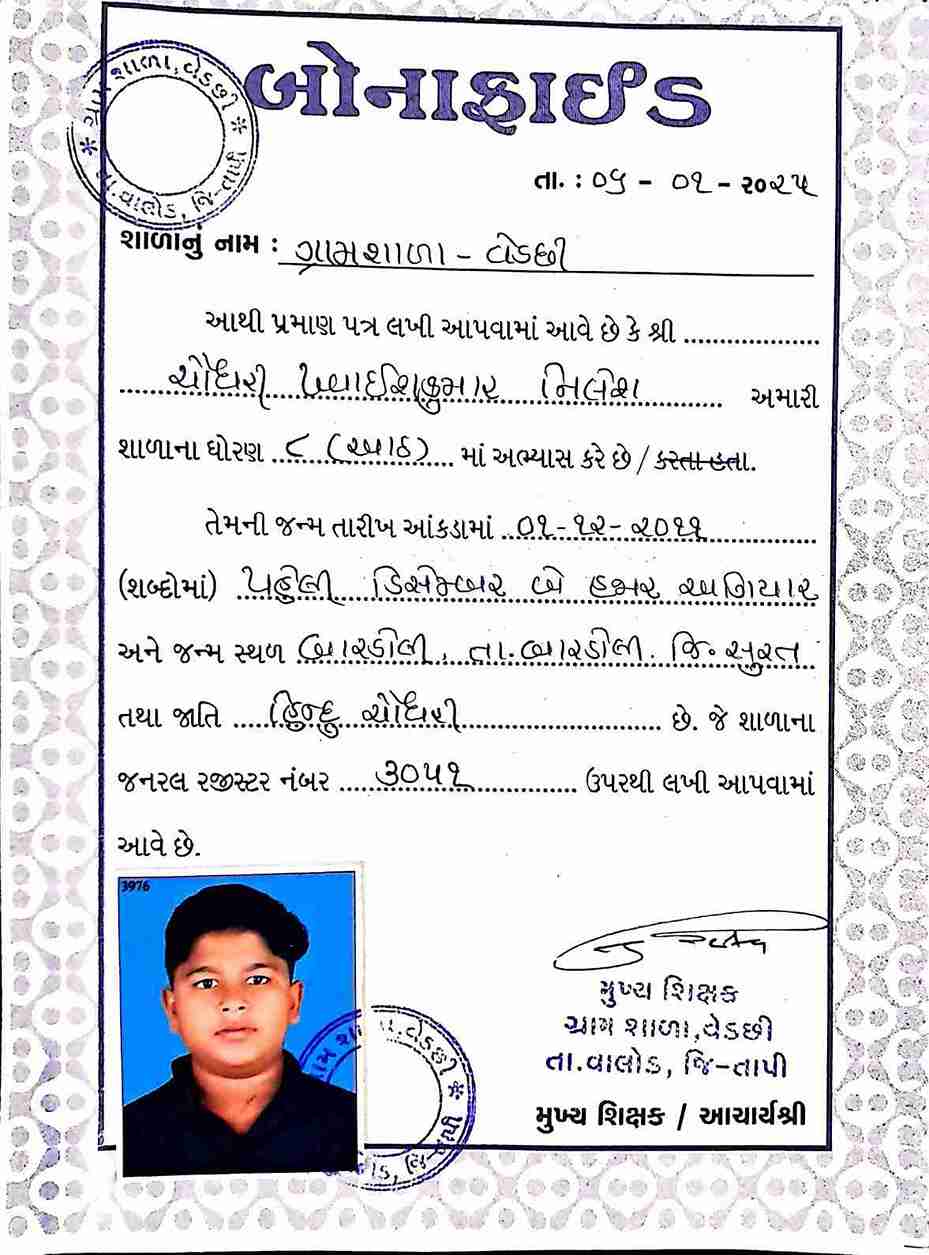 ગ્રામ શાળા, વેડછી * તા.વાલોડ, જિ-તાપી *
બોનાફાઈડ
તા. : ૦૫ - ૦૧ - ૨૦૨૫
શાળાનું નામ : ગ્રામશાળા - વેડછી
આથી પ્રમાણ પત્ર લખી આપવામાં આવે છે કે શ્રી
ચૌધરી ખ્વાઈશકુમાર નિલેશ અમારી
શાળાના ધોરણ ૮ (આઠ) માં અભ્યાસ કરે છે / કરતા હતા.
તેમની જન્મ તારીખ આંકડામાં ૦૧-૧૨-૨૦૧૧
(શબ્દોમાં) પહેલી ડિસેમ્બર બે હજાર અગિયાર
અને જન્મ સ્થળ બારડોલી, તા.બારડોલી. જિ. સુરત
તથા જાતિ હિન્દુ ચૌધરી છે. જે શાળાના
જનરલ રજીસ્ટર નંબર ૩૦૫૧ ઉપરથી લખી આપવામાં
આવે છે.
3976
મુખ્ય શિક્ષક
ગ્રામ શાળા,વેડછી
તા.વાલોડ, જિ-તાપી
મુખ્ય શિક્ષક / આચાર્યશ્રી